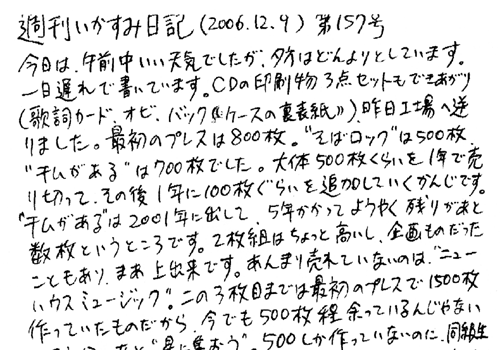 週刊いかすみ日記(2006.12.9) 第157号
今日は、午前中いい天気でしたが、夕方はどんよりとしています。
一日遅れで書いています。CDの印刷物3点セットもできあがり
(歌詞カード、オビ、バック《ケースの裏表紙》)、昨日工場へ送
りました。最初のプレスは800枚。"そばロック"は500枚、
"千ムがある"は700枚でした。大体500枚くらいを1年で売
り切って、その後1年に100枚ぐらいを追加していくかんじです。
"千ムがある"は2001年に出して、5年かかってようやく残りがあと
数枚というところです。2枚組はちょっと高いし、企画ものだった
こともあり、まあ上出来です。あんまり売れていないのは、"ニュー
ハウスミュージック"。この3枚目までは最初のプレスで1500枚
作っていたものだから、今でも500枚程余っているんじゃない
500しか作っていないのに、同級生